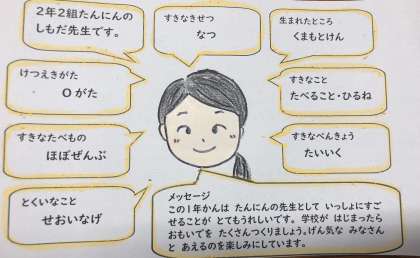 2年2組たんにんの
しもだ先生です。
すきなきせつ
なつ
生まれたところ
くまもとけん
けつえきがた
Oがた
すきなこと
たべること・ひるね
すきなたべもの
ほぼぜんぶ
すきなべんきょう
たいいく
とくいなこと
せおいなげ
メッセージ
この1年かんは たんにんの先生として いっしょにすご
せることが とてもうれしいです。学校が はじまったら
おもいでを たくさんつくりましょう。げん気な みなさん
と あえるのを楽しみにしています。